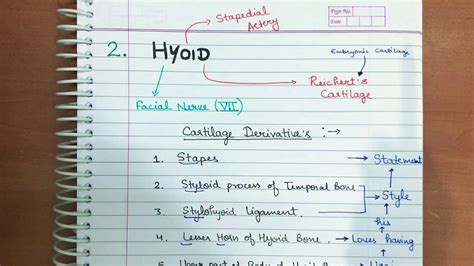 Stapedial
Artery
Page No.
Date
2. HYOID
Embryonic Cartilage
Reichert's
Cartilage
Facial Nerve (VII)
Cartilage Derivative's :→
1. Stapes → Statement
2. Styloid process of Temporal Bone
Style
3. Stylohyoid ligament.
his
4. Lesser Horn of Hyoid Bone. → Loves having
5. Upper part of Body of